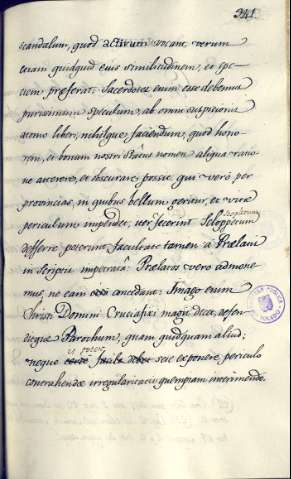 341
scandalum, quod activum vocant verum
etiam quidquid eius similitudinem, et spe-
ciem præferat. Sacerdotes enim esse debemus
purissimum speculum, ab omni suspicionis
atomo liber, nihilque faciendum, quod hono-
rem, et bonum nostri Status nomen aliqua ratio-
ne avertere, et obscurare possit qui vero per
provincias, in quibus bellum geritur, et vitæ
periculum impendet, iter fecerint Sclopetum
defferre poterunt facultate tamen à Prælato
in scriptis impetrata. Prælatos vero admone-
mus, ne eam concedant. Imago enim
Christi Domini Crucifixi magis decet defen-
Parochum, quam quidquam aliud;
neque se exponere periculo
contrahendæ irregularitatis quempiam interimendo.